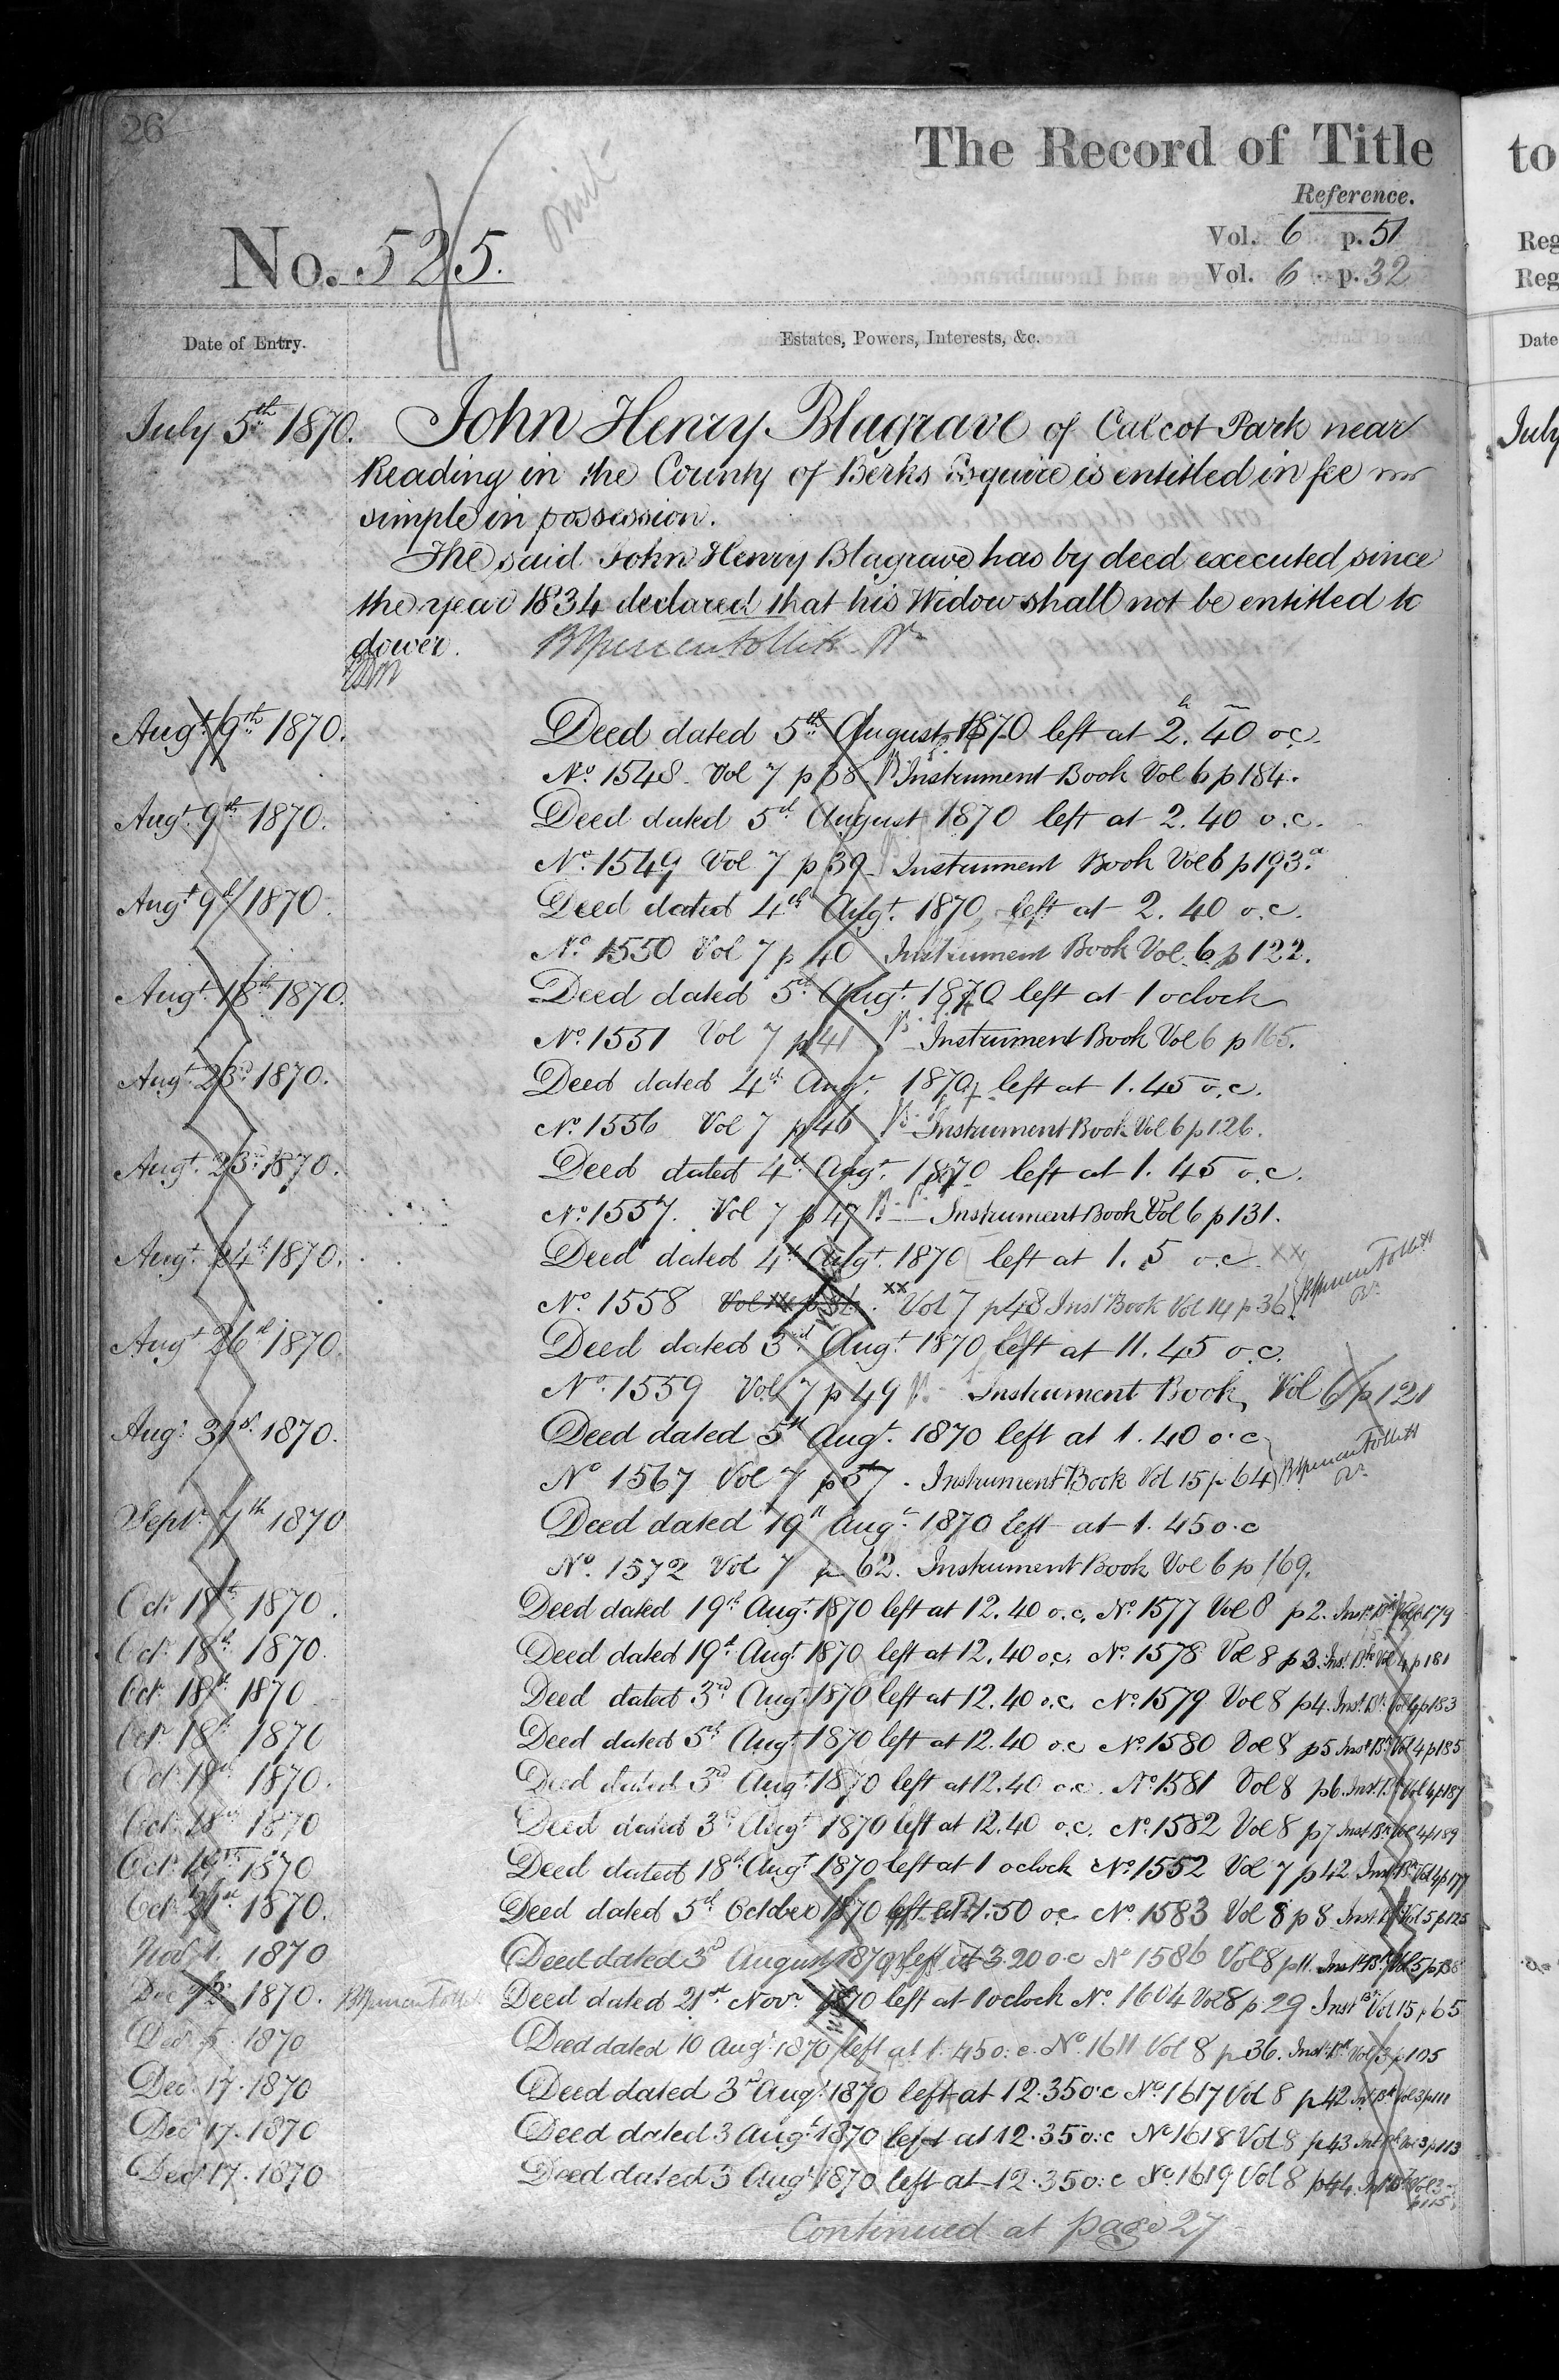 26
The Record of Title
to
Reference.
Vol. 6 p. 51
Reg
No. 525.
Vol. 6 p. 32
Reg
Date of Entry.
Estates, Powers, Interests, &c.
Date
July 5th 1870. John Henry Blagrave of Calcot Park near
July
Reading in the County of Berks Esquire is entitled in fee
simple in possession.
The said John Henry Blagrave has by deed executed since
the year 1834 declared that his Widow shall not be entitled to
dower.
Augt. 9th 1870. Deed dated 5th August 1870 left at 2h. 40m o.c.
No. 1548 Vol 7 p 38 Instrument Book Vol 6 p 184.
Augt. 9th 1870. Deed dated 5th August 1870 left at 2. 40 o.c.
No. 1549 Vol 7 p 39 Instrument Book Vol 6 p 193.a
Augt. 9th 1870. Deed dated 4th Augt. 1870 left at 2. 40 o.c.
No. 1550 Vol 7 p 40 Instrument Book Vol. 6 p 122.
Augt. 18th 1870. Deed dated 5th Augt. 1870 left at 1 oclock
No. 1551 Vol 7 p 41 Instrument Book Vol 6 p 165.
Augt. 23rd 1870. Deed dated 4th Augt. 1870 left at 1.45 o.c.
No. 1556 Vol 7 p 46 Instrument Book Vol 6 p 126.
Augt. 23rd 1870. Deed dated 4th Augt. 1870 left at 1. 45 o.c.
No. 1557. Vol 7 p 47 Instrument Book Vol 6 p 131.
Augt. 24th 1870. Deed dated 4th Augt. 1870 left at 1. 5 o.c. xx
No. 1558 xx Vol 7 p 48 Inst Book Vol 14 p 36
Augt 26th 1870. Deed dated 3rd Augt. 1870 left at 11. 45 o.c.
No. 1559 Vol 7 p 49 Instrument Book, Vol 6 p 121
Aug. 31st 1870. Deed dated 5th Augt. 1870 left at 1. 40 o.c
No 1567 Vol 7 p 57. Instrument Book Vol 15 p 64
Septr. 7th 1870 Deed dated 19th Augt. 1870 left at 1. 45 o.c
No. 1572 Vol 7 p 62. Instrument Book Vol 6 p 169.
Octr 18th 1870. Deed dated 19th Augt. 1870 left at 12. 40 o.c. No. 1577 Vol 8 p 2. Inst. Bk 179
Octr. 18th 1870. Deed dated 19th Augt 1870 left at 12. 40 o.c. No. 1578 Vol 8 p 3. Inst. Bk Vol 4 p 181
Octr. 18th 1870 Deed dated 3rd Augt. 1870 left at 12. 40 o.c. No. 1579 Vol 8 p 4. Inst. Bk Vol 4 p 183
Octr 18th 1870 Deed dated 5th Augt 1870 left at 12. 40 o.c No. 1580 Vol 8 p 5 Inst. Bk Vol 4 p 185
Octr. 18th 1870. Deed dated 3rd Augt. 1870 left at 12. 40 o.c. No. 1581 Vol 8 p 6. Inst. Bk Vol 4 p 187
Octr. 18th 1870 Deed dated 3rd Augt 1870 left at 12. 40 o.c. No. 1582 Vol 8 p 7 Inst Bk Vol 4 p 189
Octr. 19th 1870 Deed dated 18th Augt 1870 left at 1 oclock No. 1552 Vol 7 p 42 Inst. Bk Vol 4 p 177
Octr. 21st 1870. Deed dated 5th October 1870 left at 1. 50 o.c No. 1583 Vol 8 p 8 Inst. Bk Vol 5 p 125
Novr 1. 1870 Deed dated 3rd August 1870 left at 3. 20 o.c No 1586 Vol 8 p 11. Inst Bk Vol 5 p 138
Decr 2. 1870. Deed dated 21st Novr. 1870 left at 1 oclock No. 1604 Vol 8 p. 29 Inst Bk Vol 15 p 65
Decr 5. 1870 Deed dated 10 Augt 1870 left at 1. 45 o.c. No. 1611 Vol 8 p 36. Inst. Bk Vol 3 p 105
Decr. 17. 1870 Deed dated 3rd Augt. 1870 left at 12. 35 o.c No. 1617 Vol 8 p 42 Inst Bk Vol 3 p 111
Decr 17. 1870 Deed dated 3 Augt. 1870 left at 12. 35 o.c No 1618 Vol 8 p 43 Inst Bk Vol 3 p 113
Decr 17. 1870 Deed dated 3 Augt 1870 left at 12. 35 o.c No. 1619 Vol 8 p 44. Inst Bk Vol 3 p 115
Continued at page 27